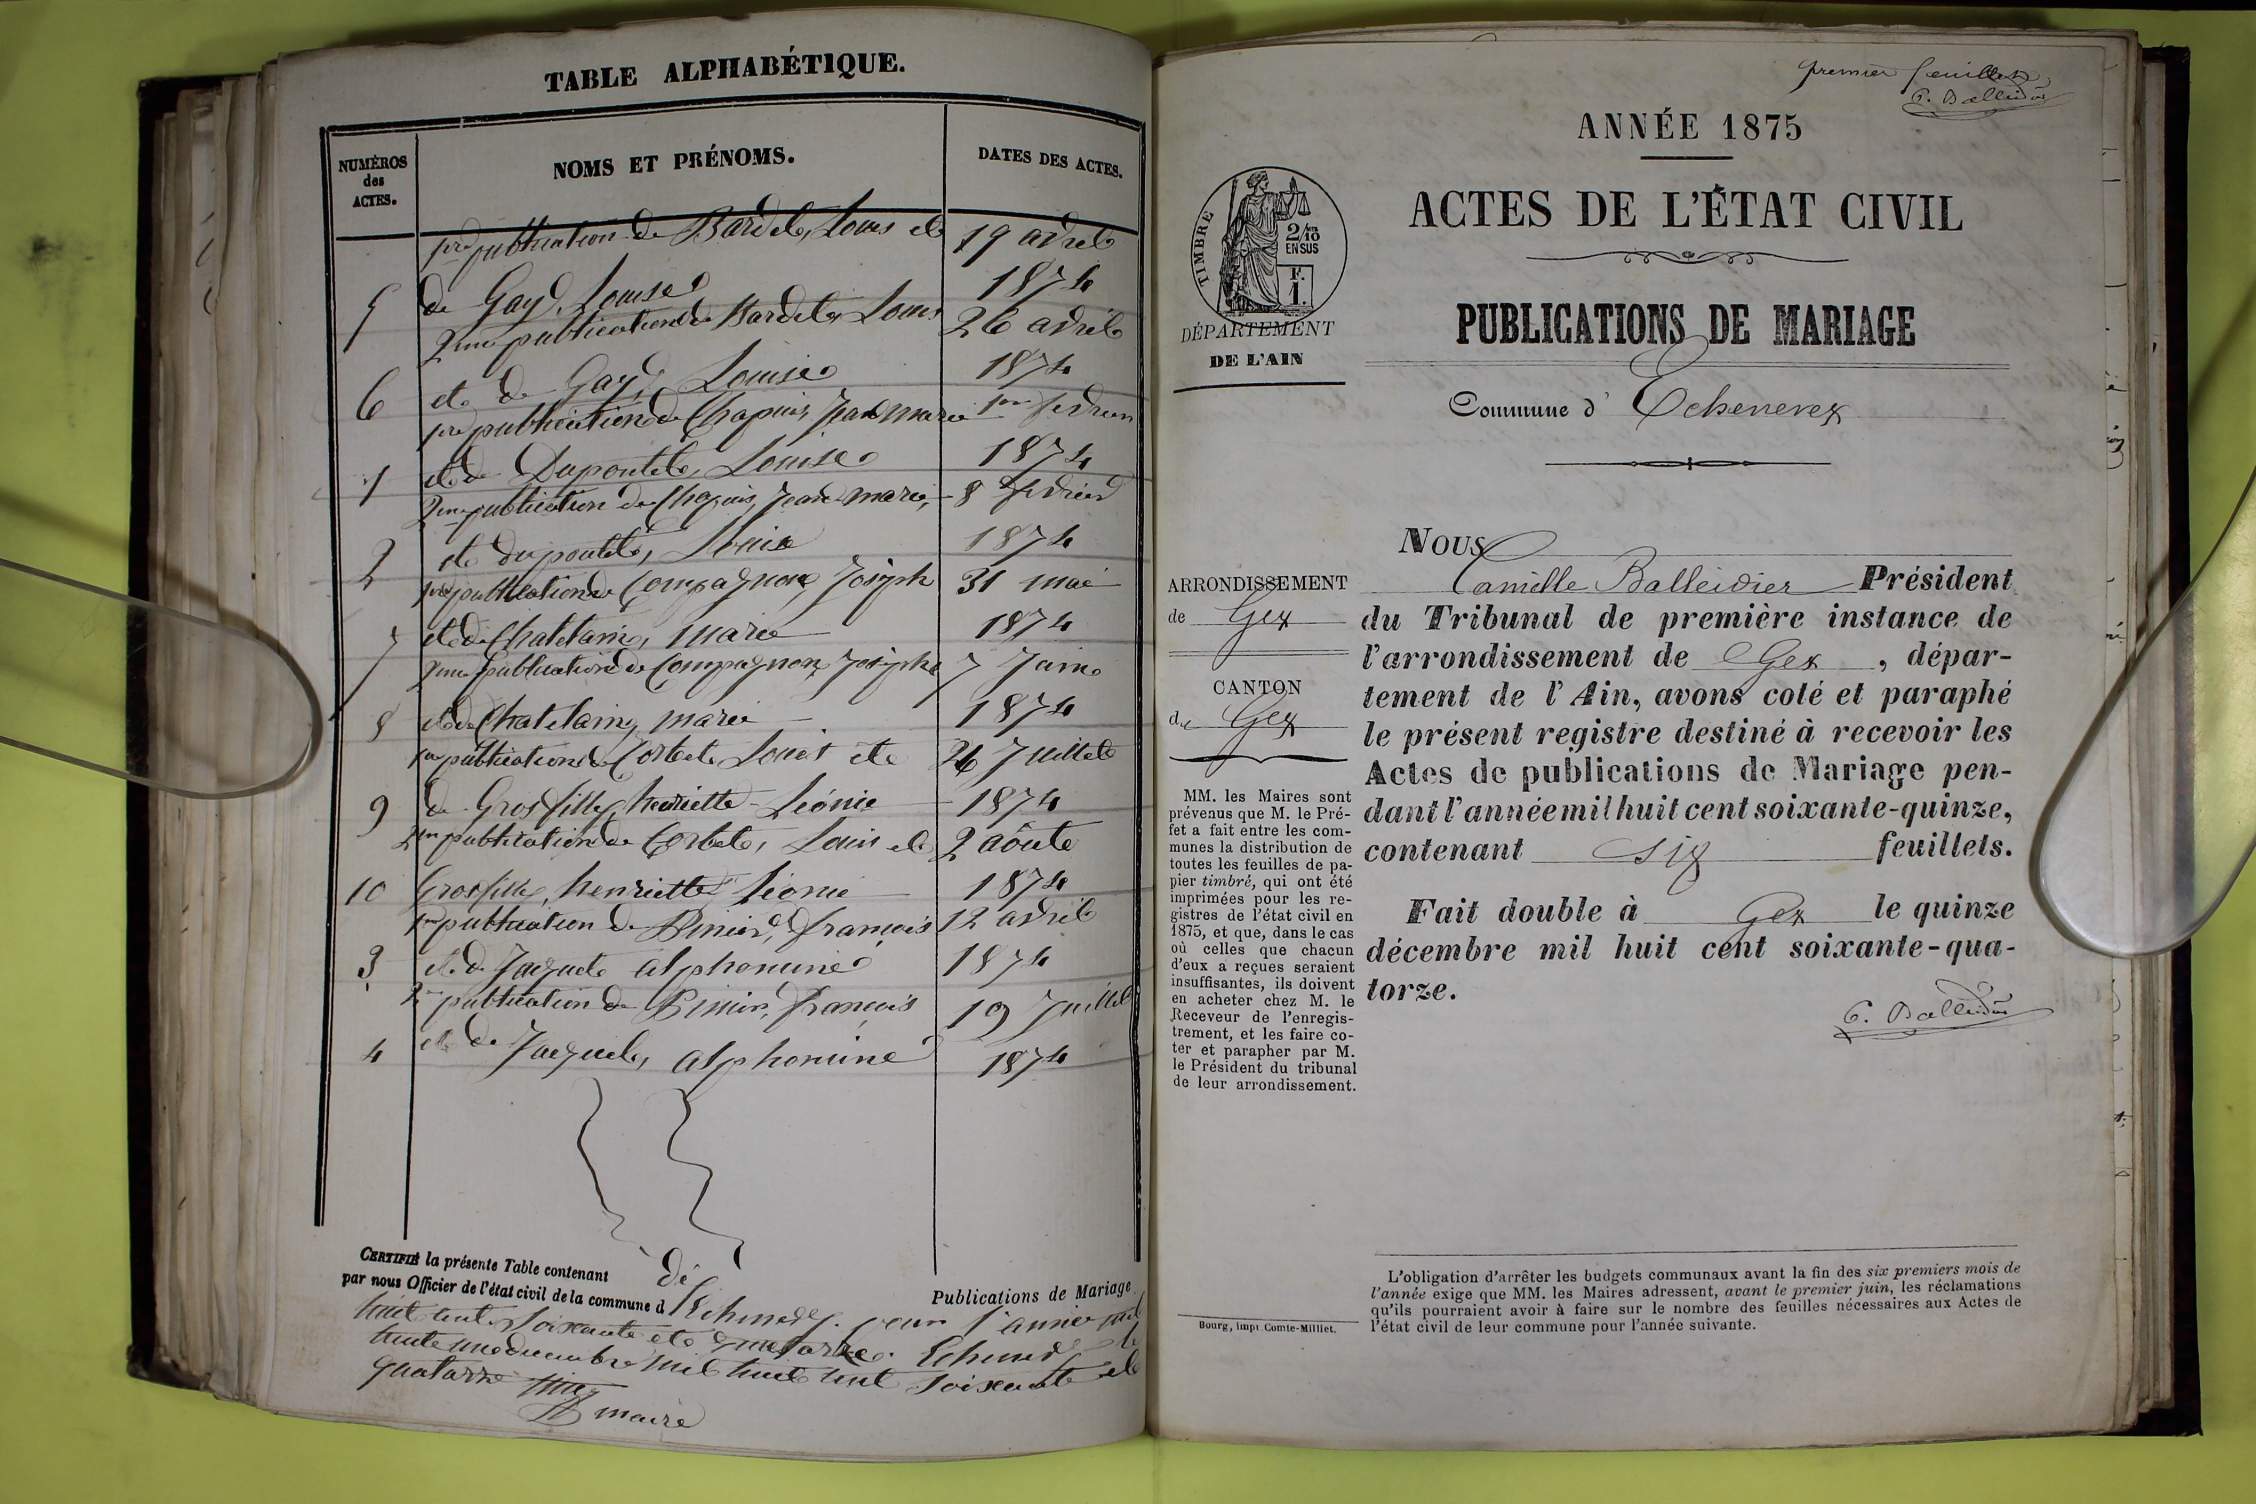 TABLE ALPHABÉTIQUE.
NUMÉROS
des
ACTES.
NOMS ET PRÉNOMS.
DATES DES ACTES.
1re publication de Bardet, Louis et 19 avril
5 de Gay, Louise 1874
2me publication de Bardet, Louis 26 avril
6 et de Gay, Louise 1874
1re publication de Chapuis, Jean marie 1er fevrier
1 et de Dupontet, Louise 1874
2me publication de Chapuis, Jean marie, 8 fevrier
2 et dupontet, Louise 1874
1re publication de Compagnon, Joseph 31 mai
7 et de Chatelain, marie 1874
2me publication de Compagnon, Joseph 7 Juin
8 et de Chatelain, marie 1874
1re publication de Corbet, Louis et 26 Juillet
9 de Grosfilley, henriette Léonie 1874
2me publication de Corbet, Louis et 2 août
10 Grosfilley, henriette Léonie 1874
1re publication de françois 12 avril
3 et de Jaquet, alphonsine 1874
2me publication de françois 19 Juillet
4 et de Jaquet, alphonsine 1874
CERTIFIÉ la présente Table contenant dix Publications de Mariage
par nous Officier de l'état civil de la commune d'Echenevex pour l'année mil
huit cent soixante et quatorze. Echenevex le
trente un décembre mil huit cent soixante et
quatorze
maire
premier feuillet
C. Balleidier
ANNÉE 1875
ACTES DE L'ÉTAT CIVIL
PUBLICATIONS DE MARIAGE
Commune d' Echenevex
TIMBRE
2/10 EN SUS
F.
1.
DÉPARTEMENT
DE L'AIN
ARRONDISSEMENT
de Gex
CANTON
de Gex
MM. les Maires sont
prévenus que M. le Pré-
fet a fait entre les com-
munes la distribution de
toutes les feuilles de pa-
pier timbré, qui ont été
imprimées pour les re-
gistres de l'état civil en
1875, et que, dans le cas
où celles que chacun
d'eux a reçues seraient
insuffisantes, ils doivent
en acheter chez M. le
Receveur de l'enregis-
trement, et les faire co-
ter et parapher par M.
le Président du tribunal
de leur arrondissement.
Bourg, impr. Comte-Milliet.
NOUS
Camille Balleidier Président
du Tribunal de première instance de
l'arrondissement de Gex, dépar-
tement de l'Ain, avons coté et paraphé
le présent registre destiné à recevoir les
Actes de publications de Mariage pen-
dant l'année mil huit cent soixante-quinze,
contenant six feuillets.
Fait double à Gex le quinze
décembre mil huit cent soixante-qua-
torze.
C. Balleidier
L'obligation d'arrêter les budgets communaux avant la fin des six premiers mois de
l'année exige que MM. les Maires adressent, avant le premier juin, les réclamations
qu'ils pourraient avoir à faire sur le nombre des feuilles nécessaires aux Actes de
l'état civil de leur commune pour l'année suivante.